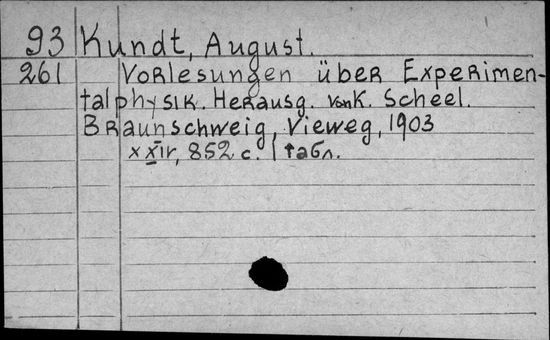 93 Kundt, August.
261 Vorlesungen über Experimen-
talphysik. Herausg. von K. Scheel.
Braunschweig, Vieweg, 1903
XXIV, 852 с. 1 табл.